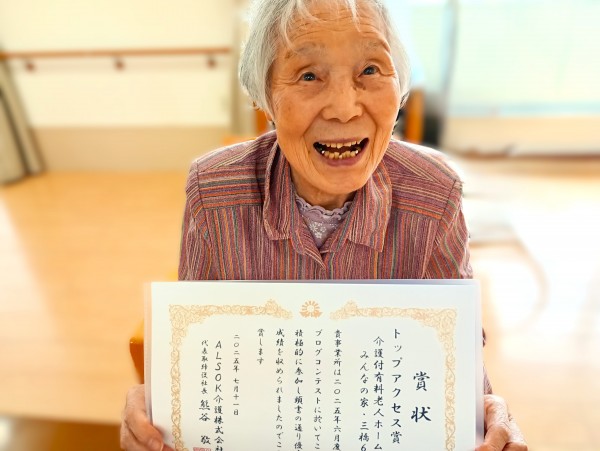 賞状
トップアクセス賞
介護付有料老人ホーム
みんなの家・三橋6
貴事業所は二〇二五年六月度
ブログコンテストに於いてこ
積極的に参加し頭書の通り優
成績を収められましたのでこ
賞します
二〇二五年 七月十一日
ALSOK介護株式会社
代表取締役社長 熊谷 敬